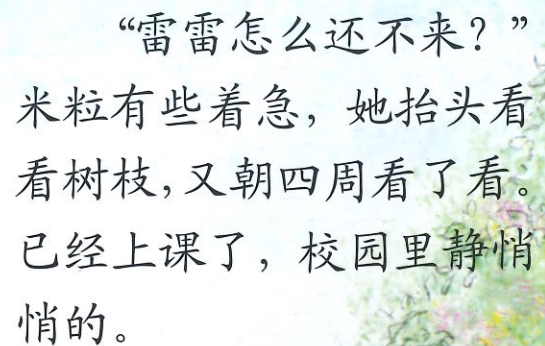 “雷雷怎么还不来？”
米粒有些着急，她抬头看
看树枝，又朝四周看了看。
已经上课了，校园里静悄
悄的。